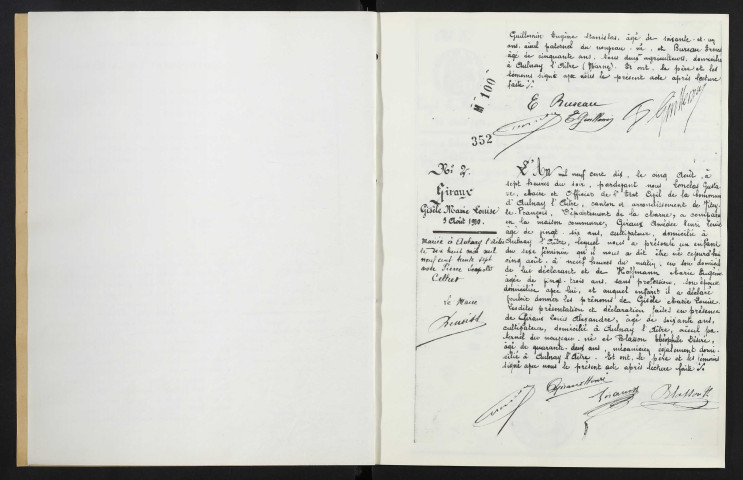 Guillemin Eugène Stanislas, âgé de soixante et un
ans, aïeul paternel du nouveau-né, et Bureau
âgé de cinquante ans, tous deux agriculteurs, domiciliés
à Aulnay l'Aître (Marne). Et ont, le père et les
témoins signé avec nous le présent acte après lecture
faite.
E Bureau
E Guillemin
N° 100
352
N° 2.
Giraux
Gisèle Marie Louise
5 Août 1910.
Mariée à Aulnay l'Aître
le dix huit mai mil
neuf cent trente sept
avec Pierre Leopold
Le Maire
L'An mil neuf cent dix, le cinq Août, à
sept heures du soir, pardevant nous Gusta
ve, Maire et Officier de l'Etat Civil de la commune
d'Aulnay l'Aître, canton et arrondissement de Vitry-
le-François, Département de la Marne, a comparu
en la maison commune, Giraux Amédée Henri Louis
âgé de vingt-six ans, cultivateur, domicilié à
Aulnay l'Aître, lequel nous a présenté un enfant
du sexe féminin qu'il nous a dit être né cejourd'hui
cinq août, à neuf heures du matin, en son domicile
de lui déclarant et de Hoffmann Marie Eugénie
âgée de vingt-trois ans, sans profession, son épouse
domiciliée avec lui, et auquel enfant il a déclaré
vouloir donner les prénoms de Gisèle Marie Louise.
Lesdites présentation et déclaration faites en présence
de Giraux Louis Alexandre, âgé de soixante ans,
cultivateur, domicilié à Aulnay l'Aître, aïeul pa-
ternel du nouveau-né et Théophile Désiré,
âgé de quarante-deux ans, mécanicien, également domi-
cilié à Aulnay l'Aître. Et ont, le père et les témoins
signé avec nous le présent acte après lecture faite.
Giraux Henri
Giraux